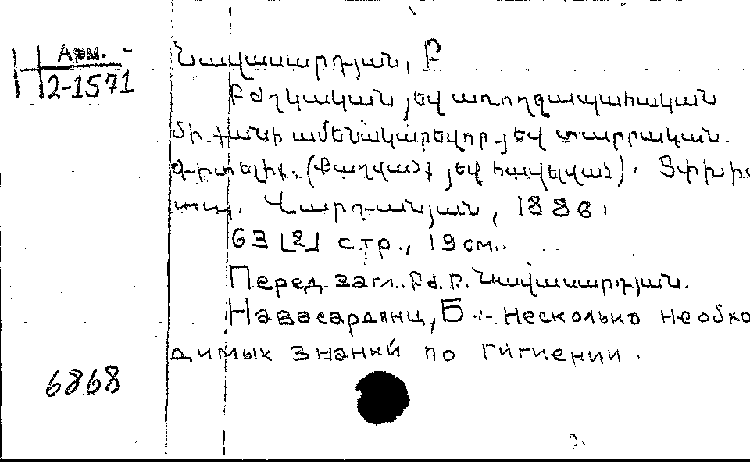 Арм.
H 2-1571
Նավասարդյան, Բ
Բժշկական յեվ առողջապահական
մի քանի ամենակարեվոր յեվ տարրական
գիտելիք. (Քաղված յեվ հավելված). Թիֆլիս
տպ. Վարդանյան, 1886.
63 [2] стр., 19 см.
Перед загл. Բժ. Բ. Նավասարդյան.
Навасардянц, Б. - Несколько необхо
димых знаний по гигиении.
6868